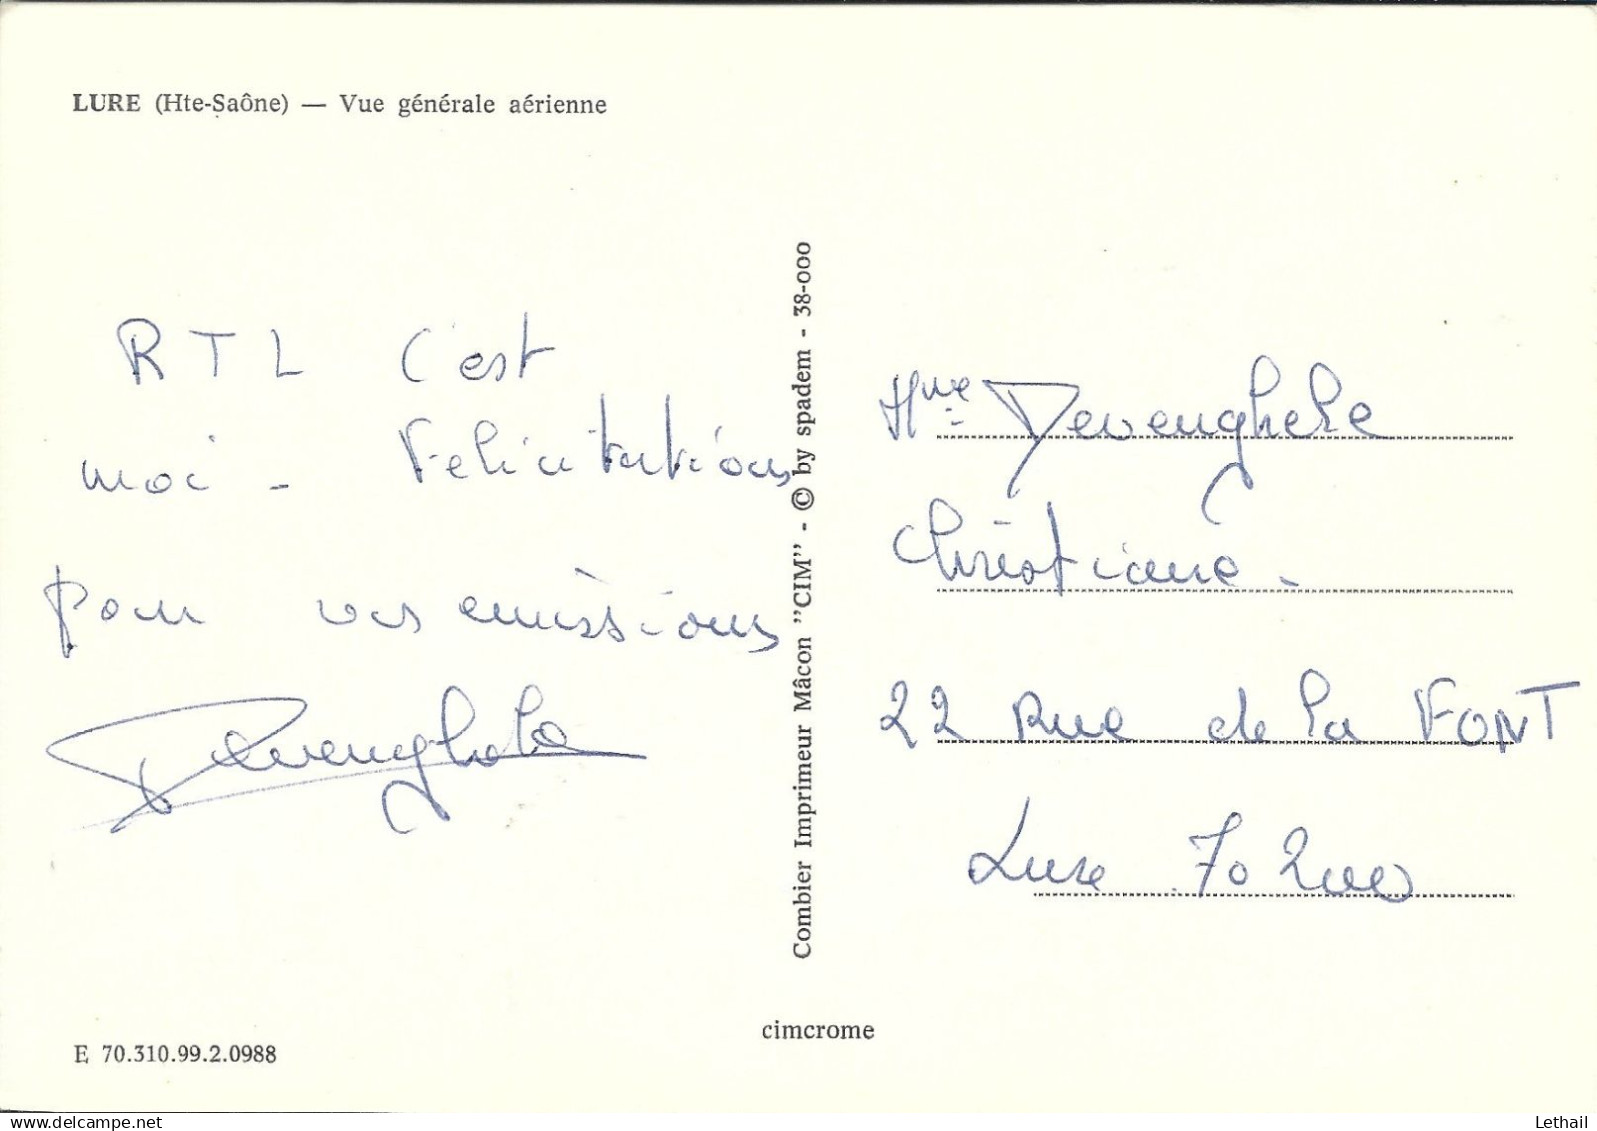 LURE (Hte-Saône) — Vue générale aérienne
RTL C'est
moi - Félicitations
pour vos emissions
Devenghele
Combier Imprimeur Mâcon "CIM" - © by spadem - 38-000
Mme Devenghele
Christiane -
22 Rue de la FONT
Lure 70200
cimcrome
E 70.310.99.2.0988
delcampe.net
Lethail